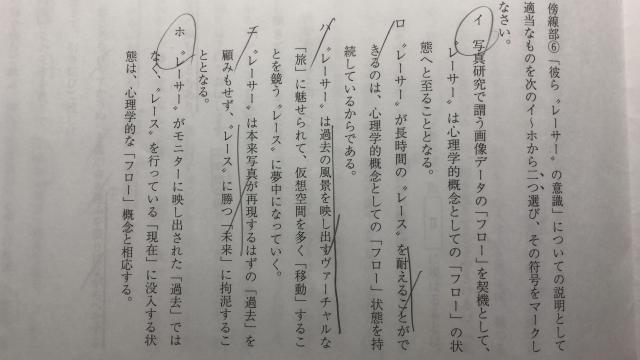 傍線部⑥「彼ら〝レーサー〟の意識」についての説明として
適当なものを次のイ～ホから二つ選び、その符号をマークし
なさい。
イ　写真研究で謂う画像データの「フロー」を契機として、
〝レーサー〟は心理学的概念としての「フロー」の状
態へと至ることとなる。
ロ　〝レーサー〟が長時間の〝レース〟を耐えることがで
きるのは、心理学的概念としての「フロー」状態を持
続しているからである。
ハ　〝レーサー〟は過去の風景を映し出すヴァーチャルな
「旅」に魅せられて、仮想空間を多く「移動」するこ
とを競う〝レース〟に夢中になっていく。
ニ　〝レーサー〟は本来写真が再現するはずの「過去」を
顧みもせず、〝レース〟に勝つ「未来」に拘泥するこ
ととなる。
ホ　〝レーサー〟がモニターに映し出された「過去」では
なく、〝レース〟を行っている「現在」に没入する状
態は、心理学的な「フロー」概念と相応する。